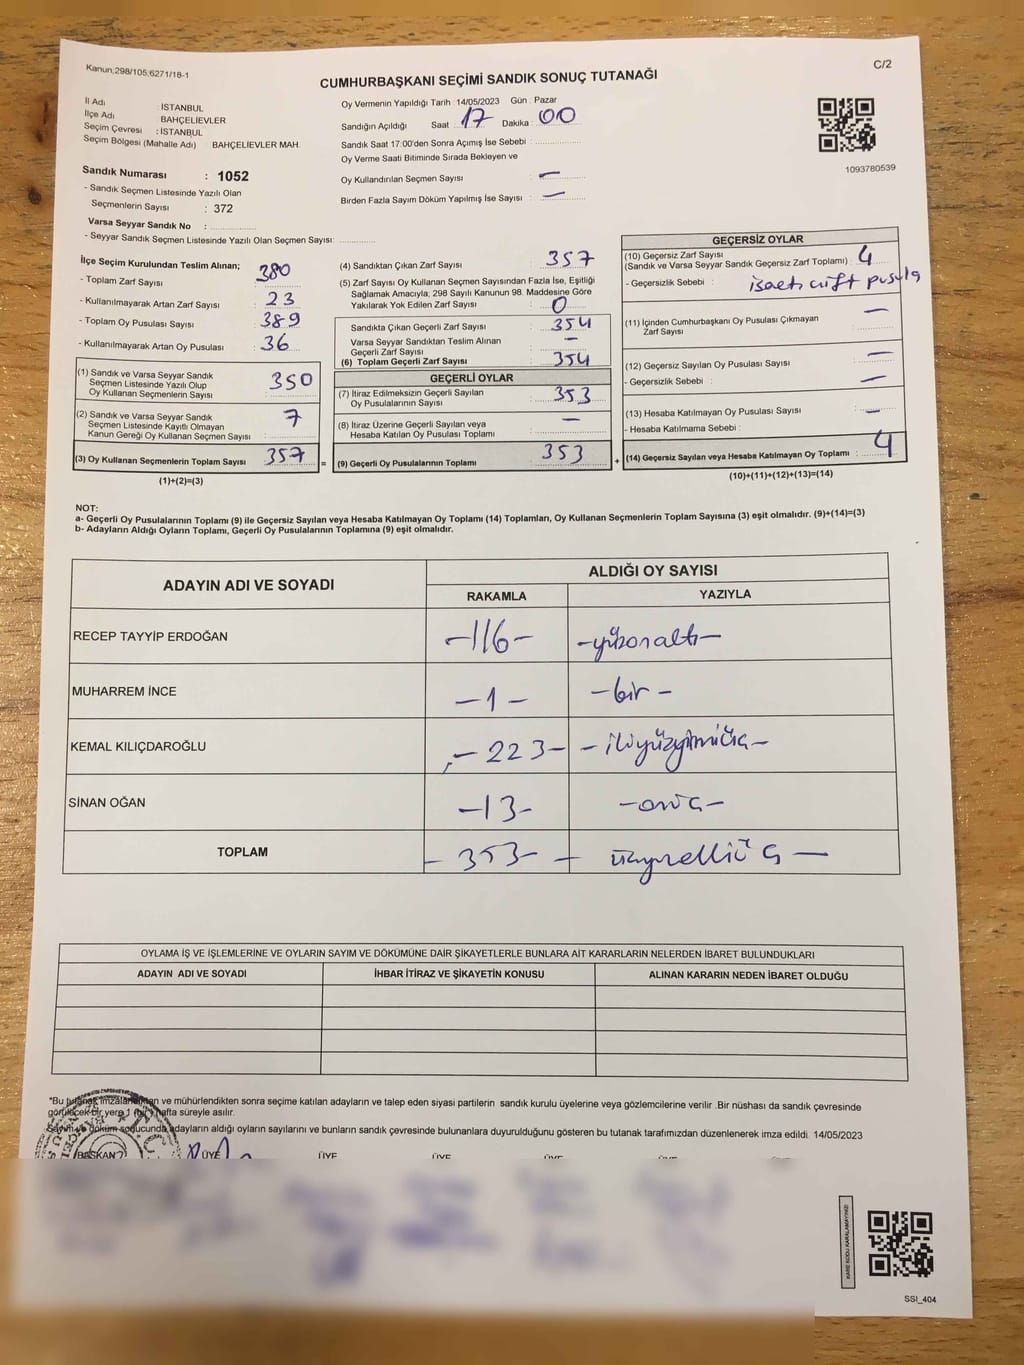 Kanun;298/105;6271/18-1
C/2
CUMHURBAŞKANI SEÇİMİ SANDIK SONUÇ TUTANAĞI
İl Adı : İSTANBUL
İlçe Adı : BAHÇELİEVLER
Seçim Çevresi : İSTANBUL
Seçim Bölgesi (Mahalle Adı) BAHÇELİEVLER MAH.
Sandık Numarası : 1052
- Sandık Seçmen Listesinde Yazılı Olan
Seçmenlerin Sayısı : 372
Varsa Seyyar Sandık No :
- Seyyar Sandık Seçmen Listesinde Yazılı Olan Seçmen Sayısı:
Oy Vermenin Yapıldığı Tarih 14/05/2023 Gün : Pazar
Sandığın Açıldığı Saat : 17 Dakika : 00
Sandık Saat 17:00'den Sonra Açımış İse Sebebi :
Oy Verme Saati Bitiminde Sırada Bekleyen ve
Oy Kullandırılan Seçmen Sayısı : —
Birden Fazla Sayım Döküm Yapılmış İse Sayısı : —
1093780539
İlçe Seçim Kurulundan Teslim Alınan;
- Toplam Zarf Sayısı : 380
- Kullanılmayarak Artan Zarf Sayısı : 23
- Toplam Oy Pusulası Sayısı : 389
- Kullanılmayarak Artan Oy Pusulası : 36
(1) Sandık ve Varsa Seyyar Sandık
Seçmen Listesinde Yazılı Olup
Oy Kullanan Seçmenlerin Sayısı : 350
(2) Sandık ve Varsa Seyyar Sandık
Seçmen Listesinde Kayıtlı Olmayan
Kanun Gereği Oy Kullanan Seçmen Sayısı : 7
(3) Oy Kullanan Seçmenlerin Toplam Sayısı : 357
(1)+(2)=(3)
=
(4) Sandıktan Çıkan Zarf Sayısı : 357
(5) Zarf Sayısı Oy Kullanan Seçmen Sayısından Fazla İse, Eşitliği
Sağlamak Amacıyla; 298 Sayılı Kanunun 98. Maddesine Göre
Yakılarak Yok Edilen Zarf Sayısı : 0
Sandıkta Çıkan Geçerli Zarf Sayısı : 354
Varsa Seyyar Sandıktan Teslim Alınan
Geçerli Zarf Sayısı : —
(6) Toplam Geçerli Zarf Sayısı : 354
GEÇERLİ OYLAR
(7) İtiraz Edilmeksizin Geçerli Sayılan
Oy Pusulalarının Sayısı : 353
(8) İtiraz Üzerine Geçerli Sayılan veya
Hesaba Katılan Oy Pusulası Toplamı : —
(9) Geçerli Oy Pusulalarının Toplamı : 353
+
GEÇERSİZ OYLAR
(10) Geçersiz Zarf Sayısı : 4
(Sandık ve Varsa Seyyar Sandık Geçersiz Zarf Toplamı)
- Geçersizlik Sebebi : çift pusula
(11) İçinden Cumhurbaşkanı Oy Pusulası Çıkmayan
Zarf Sayısı : —
(12) Geçersiz Sayılan Oy Pusulası Sayısı : —
- Geçersizlik Sebebi : —
(13) Hesaba Katılmayan Oy Pusulası Sayısı : —
- Hesaba Katılmama Sebebi :
(14) Geçersiz Sayılan veya Hesaba Katılmayan Oy Toplamı : 4
(10)+(11)+(12)+(13)=(14)
NOT:
a- Geçerli Oy Pusulalarının Toplamı (9) ile Geçersiz Sayılan veya Hesaba Katılmayan Oy Toplamı (14) Toplamları, Oy Kullanan Seçmenlerin Toplam Sayısına (3) eşit olmalıdır. (9)+(14)=(3)
b- Adayların Aldığı Oyların Toplamı, Geçerli Oy Pusulalarının Toplamına (9) eşit olmalıdır.
ADAYIN ADI VE SOYADI
ALDIĞI OY SAYISI
RAKAMLA YAZIYLA
RECEP TAYYİP ERDOĞAN -116- -yüzonaltı-
MUHARREM İNCE -1- -bir-
KEMAL KILIÇDAROĞLU -223- -ikiyüzyirmiüç-
SİNAN OĞAN -13- -onüç-
TOPLAM -353- - üçyüzelliüç -
OYLAMA İŞ VE İŞLEMLERİNE VE OYLARIN SAYIM VE DÖKÜMÜNE DAİR ŞİKAYETLERLE BUNLARA AİT KARARLARIN NELERDEN İBARET BULUNDUKLARI
ADAYIN ADI VE SOYADI İHBAR İTİRAZ VE ŞİKAYETİN KONUSU ALINAN KARARIN NEDEN İBARET OLDUĞU
*Bu tutanak imzalandıktan ve mühürlendikten sonra seçime katılan adayların ve talep eden siyasi partilerin sandık kurulu üyelerine veya gözlemcilerine verilir .Bir nüshası da sandık çevresinde
görülecek bir yere 1 (bir) hafta süreyle asılır.
Sayım ve döküm sonucunda adayların aldığı oyların sayılarını ve bunların sandık çevresinde bulunanlara duyurulduğunu gösteren bu tutanak tarafımızdan düzenlenerek imza edildi. 14/05/2023
BAŞKAN ÜYE ÜYE ÜYE ÜYE
KARE KODU KARALAMAYINIZ!
SSI_404